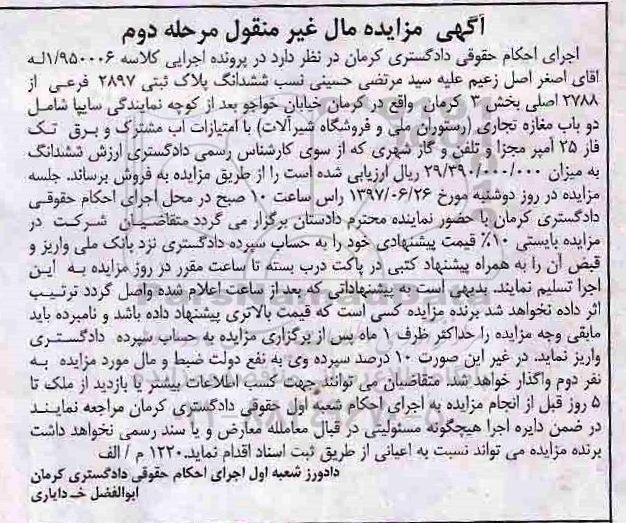 آگهی مزایده مال غیر منقول مرحله دوم
اجرای احکام حقوقی دادگستری کرمان در نظر دارد در پرونده اجرایی کلاسه ۱/۹۵۰۰۰۶له
اقای اصغر اصل زعیم علیه سید مرتضی حسینی نسب ششدانگ پلاک ثبتی ۲۸۹۷ فرعی از
۲۷۸۸ اصلی بخش ۳ کرمان واقع در کرمان خیابان خواجو بعد از کوچه نمایندگی سایپا شامل
دو باب مغازه تجاری (رستوران ملی و فروشگاه شیرآلات) با امتیازات اب مشترک و برق تک
فاز ۲۵ آمپر مجزا و تلفن و گاز شهری که از سوی کارشناس رسمی دادگستری ارزش ششدانگ
به میزان ۲۹/۳۹۰/۰۰۰/۰۰۰ ریال ارزیابی شده است را از طریق مزایده به فروش برساند. جلسه
مزایده در روز دوشنبه مورخ ۱۳۹۷/۰۶/۲۶ راس ساعت ۱۰ صبح در محل اجرای احکام حقوقی
دادگستری کرمان با حضور نماینده محترم دادستان برگزار می گردد متقاضیان شرکت در
مزایده بایستی ۱۰٪ قیمت پیشنهادی خود را به حساب سپرده دادگستری نزد بانک ملی واریز و
قبض آن را به همراه پیشنهاد کتبی در پاکت درب بسته تا ساعت مقرر در روز مزایده به این
اجرا تسلیم نمایند. بدیهی است به پیشنهاداتی که بعد از ساعت اعلام شده واصل گردد ترتیب
اثر داده نخواهد شد برنده مزایده کسی است که قیمت بالاتری پیشنهاد داده باشد و نامبرده باید
مابقی وجه مزایده را حداکثر ظرف ۱ ماه پس از برگزاری مزایده به حساب سپرده دادگستری
واریز نماید. در غیر این صورت ۱۰ درصد سپرده وی به نفع دولت ضبط و مال مورد مزایده به
نفر دوم واگذار خواهد شد. متقاضیان می توانند جهت کسب اطلاعات بیشتر یا بازدید از ملک تا
۵ روز قبل از انجام مزایده به اجرای احکام شعبه اول حقوقی دادگستری کرمان مراجعه نمایند
در ضمن دایره اجرا هیچگونه مسئولیتی در قبال معامله معارض و یا سند رسمی نخواهد داشت
برنده مزایده می تواند نسبت به اعیانی از طریق ثبت اسناد اقدام نماید.۱۲۲۰ م / الف
دادورز شعبه اول اجرای احکام حقوقی دادگستری کرمان
ابوالفضل خدایاری